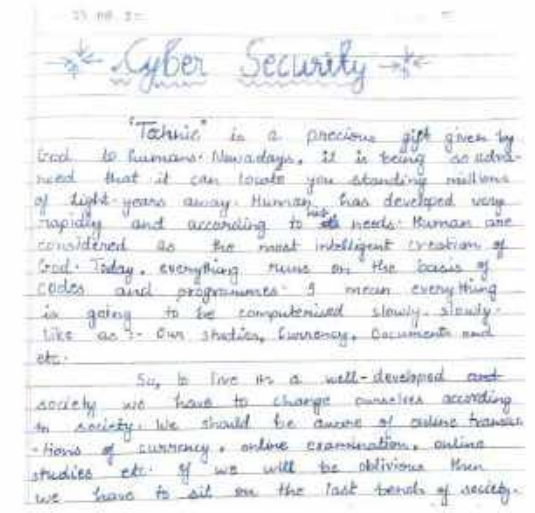 Cyber Security
"Technic" is a precious gift given by
God to humans. Nowadays, it is being so adva-
nced that it can locate you standing millions
of light-years away. Human has developed very
rapidly and according to his needs. Human are
considered as the most intelligent creation of
God. Today, everything runs on the basis of
codes and programmes. I mean everything
is going to be computerised slowly-slowly.
Like as :- Our studies, Currency, Documents and
etc.
So, to live in a well-developed and
society we have to change ourselves according
to society. We should be aware of online transac
-tions of currency, online examination, online
studies etc. If we will be oblivious then
we have to sit on the last bench of society.